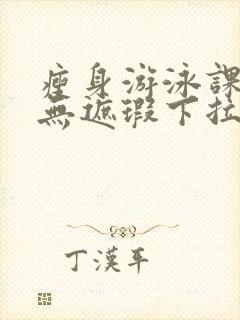 瘦身游泳課
無遮瑕下拉
丁漢平